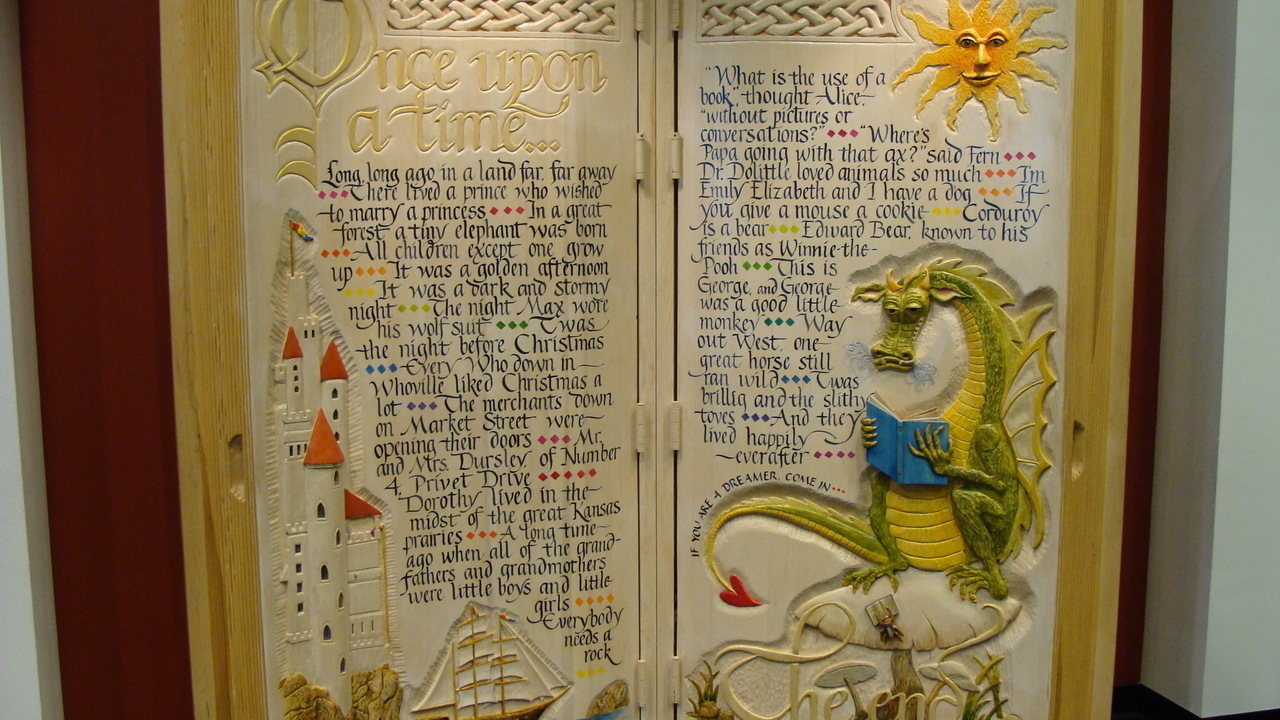 Once upon
a time...
Long, long ago in a land far, far away
There lived a prince who wished
to marry a princess In a great
forest, a tiny elephant was born
All children except one grow
up It was a golden afternoon
It was a dark and stormy
night The night Max wore
his wolf suit 'Twas
the night before Christmas
Every Who down in
Whoville liked Christmas a
lot The merchants down
on Market Street were
opening their doors Mr.
and Mrs. Dursley, of Number
4, Privet Drive
Dorothy lived in the
midst of the great Kansas
prairies A long time
ago when all of the grand-
fathers and grandmothers
were little boys and little
girls
Everybody
needs a
rock
"What is the use of a
book", thought Alice,
"without pictures or
conversations?" "Where's
Papa going with that ax?" said Fern
Dr. Dolittle loved animals so much I'm
Emily Elizabeth and I have a dog If
you give a mouse a cookie Corduroy
is a bear Edward Bear, known to his
friends as Winnie-the-
Pooh This is
George, and George
was a good little
monkey Way
out West, one
great horse still
ran wild 'Twas
brillig and the slithy
toves And they
lived happily
ever after
IF YOU ARE A DREAMER, COME IN...
The end